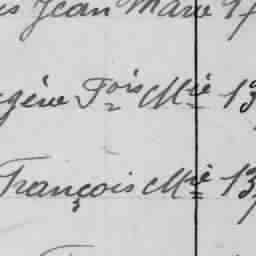 Jean Marie
gène Fois Mie 13
François Mie 13